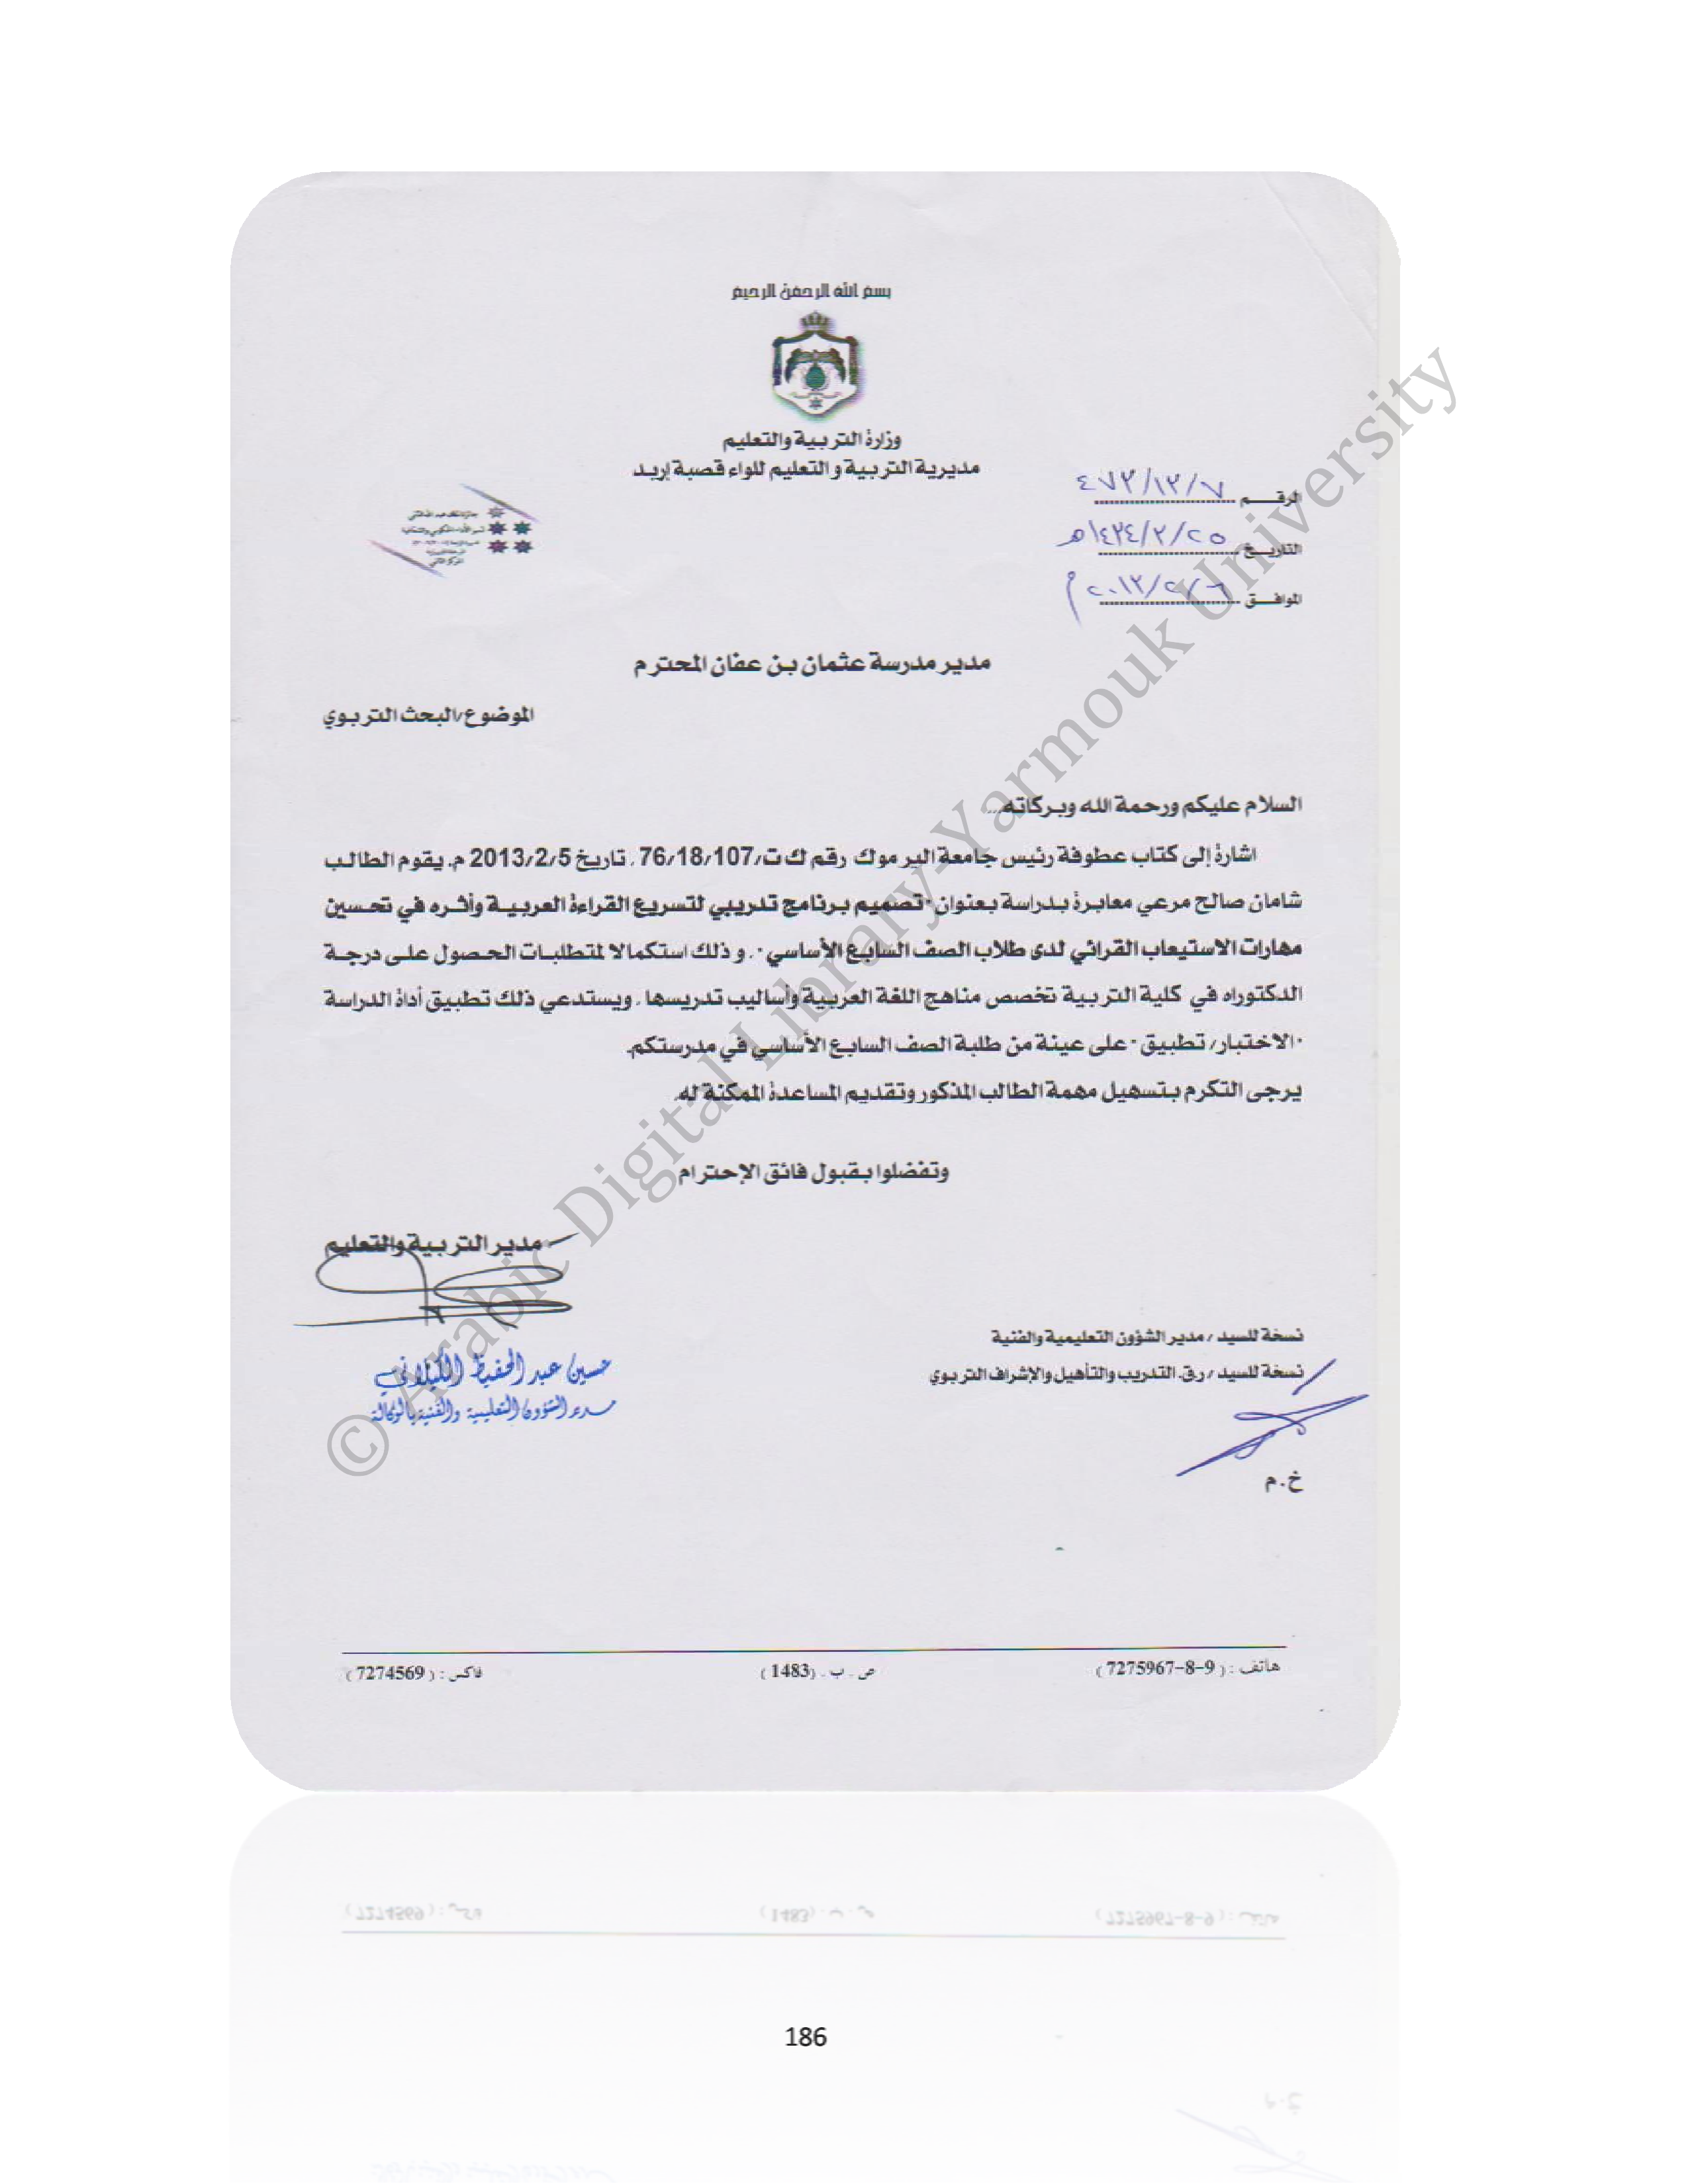 بسم الله الرحمن الرحيم
وزارة التربية والتعليم
مديرية التربية والتعليم للواء قصبة إربد
الرقم ٤٧٣/١٣/٧
التاريخ ١٤٣٤/٣/٢٥هـ
الموافق ٢٠١٣/٢/٦م
مدير مدرسة عثمان بن عفان المحترم
الموضوع/البحث التربوي
السلام عليكم ورحمة الله وبركاته...
اشارة إلى كتاب عطوفة رئيس جامعة اليرموك رقم ك ت/76/18/107 . تاريخ 2013/2/5 م. يقوم الطالب
شامان صالح مرعي معابرة بدراسة بعنوان "تصميم برنامج تدريبي لتسريع القراءة العربية وأثره في تحسين
مهارات الاستيعاب القرائي لدى طلاب الصف السابع الأساسي" . و ذلك استكمالا لمتطلبات الحصول على درجة
الدكتوراه في كلية التربية تخصص مناهج اللغة العربية وأساليب تدريسها . ويستدعي ذلك تطبيق أداة الدراسة
"الاختبار/ تطبيق" على عينة من طلبة الصف السابع الأساسي في مدرستكم.
يرجى التكرم بتسهيل مهمة الطالب المذكور وتقديم المساعدة الممكنة له.
وتفضلوا بقبول فائق الإحترام
مدير التربية والتعليم
حسين عبد الحفيظ الكيلاني
مدير الشؤون التعليمية والفنية بالوكالة
نسخة للسيد / مدير الشؤون التعليمية والفنية
نسخة للسيد / ر.ق. التدريب والتأهيل والإشراف التربوي
خ.م
هاتف : ( 7275967-8-9 ) ص . ب . (1483 ) فاكس : ( 7274569 )
© Arabic Digital Library-Yarmouk University
186